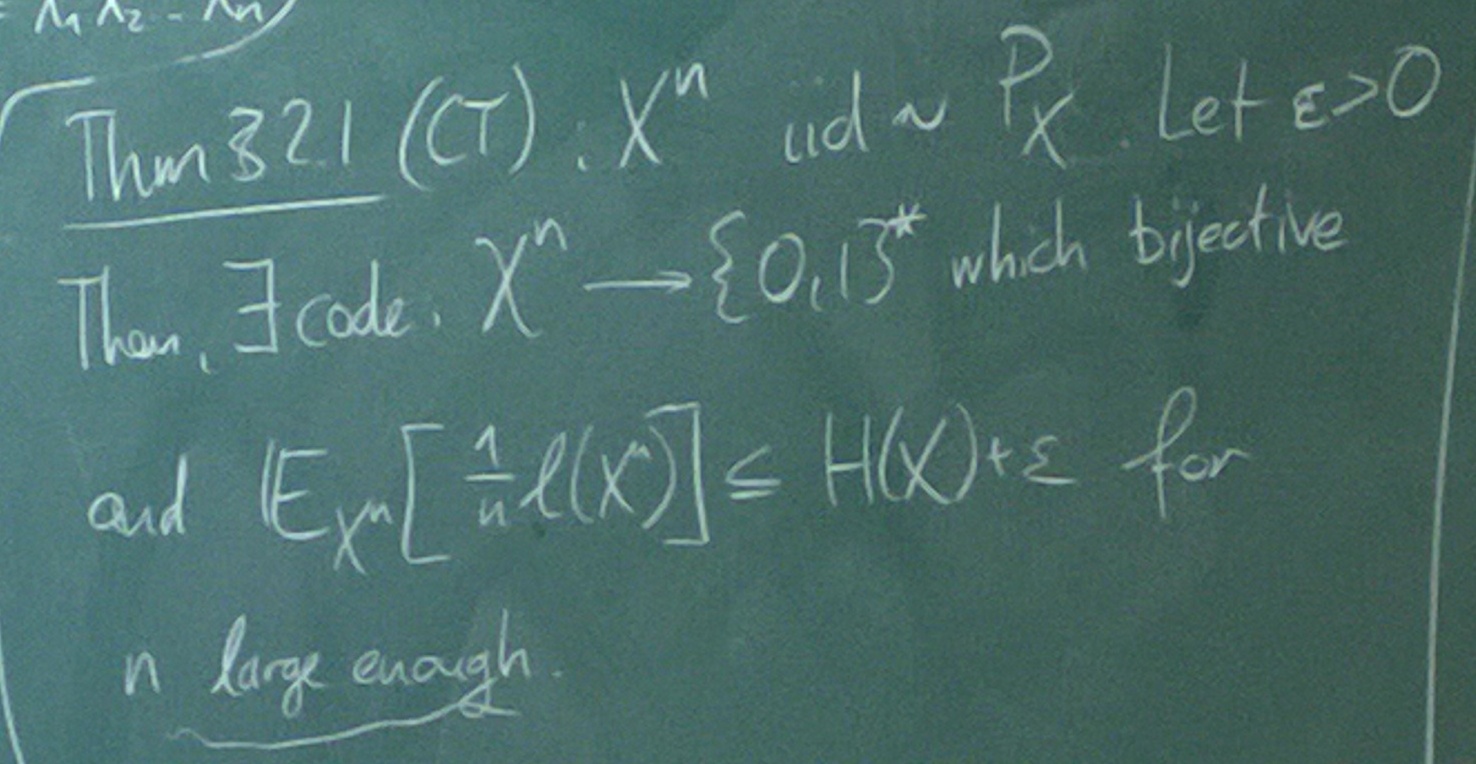 λ₁λ₂ - λₙ)
Thm 3.2.1 (CT): Xⁿ iid ~ P_X. Let ε>0
Then, ∃ code: 𝒳ⁿ → {0,1}* which bijective
and 𝔼_{Xⁿ}[1/n ℓ(Xⁿ)] ≤ H(X)+ε for
n large enough.